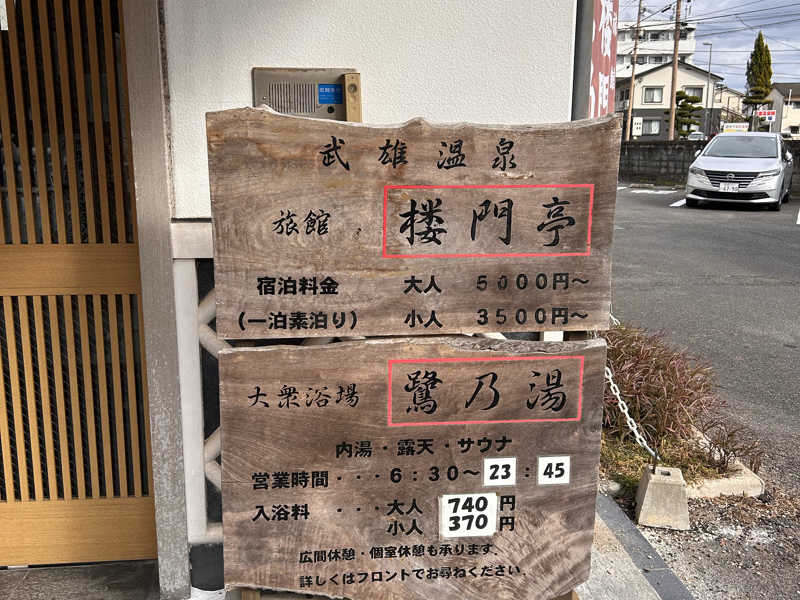 武雄温泉
旅館 楼門亭
宿泊料金 大人 5000円～
(一泊素泊り) 小人 3500円～
大衆浴場 鷺乃湯
内湯・露天・サウナ
営業時間・・・6:30～23:45
入浴料 ・・・大人 740円
小人 370円
広間休憩・個室休憩も承ります.
詳しくはフロントでお尋ねください.